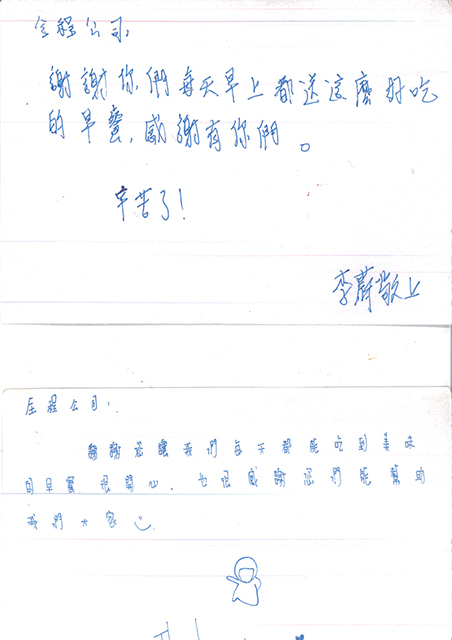 全程公司:
謝謝你們每天早上都送這麼好吃
的早餐,感謝有你們。
辛苦了!
李蔚敬上
全程公司:
謝謝您讓我們每天都能吃到美味
的早餐,很開心,也很感謝您們能幫助
我們大家